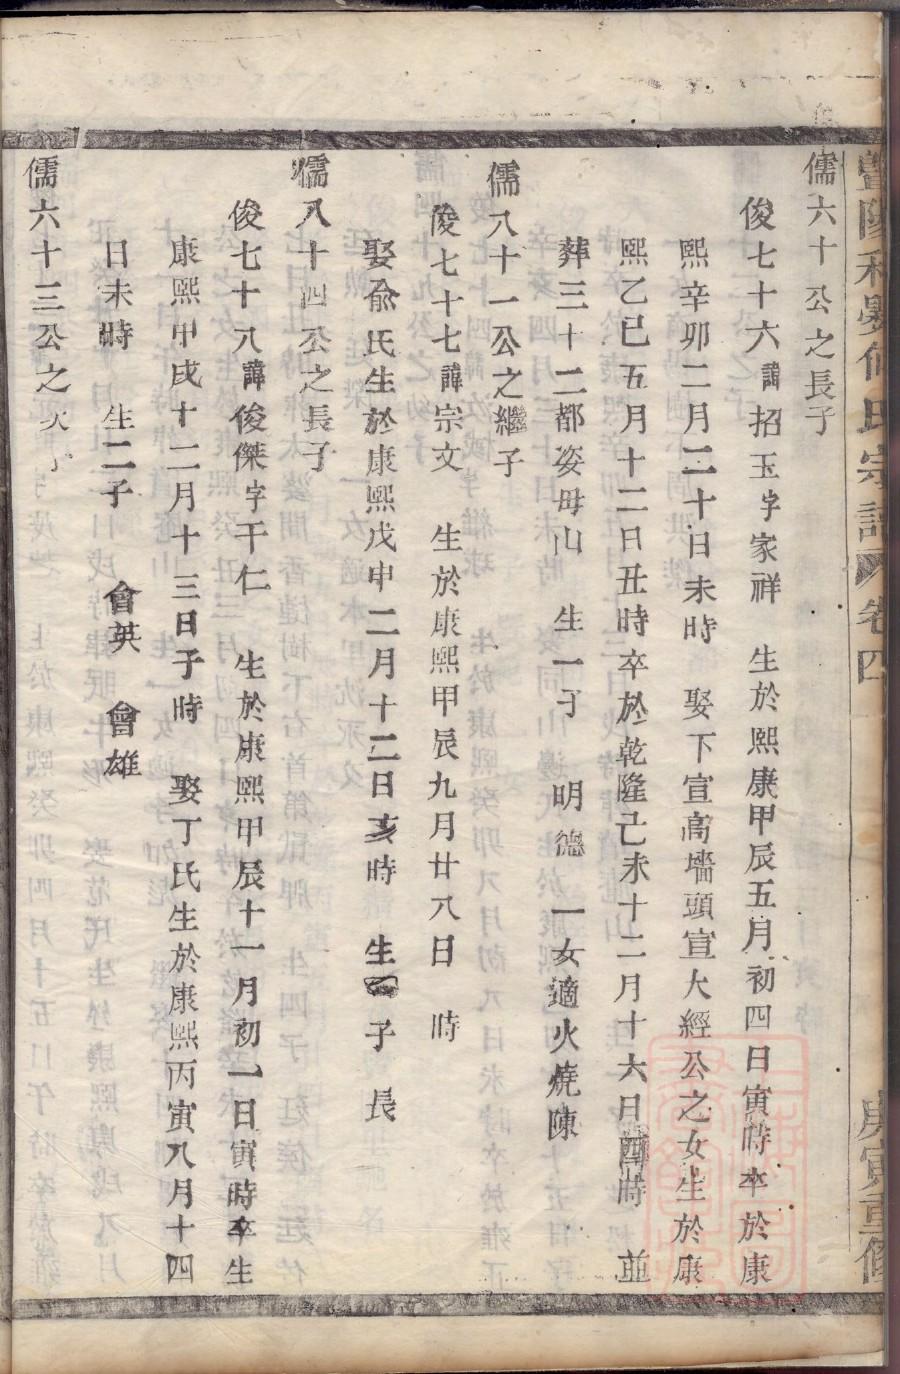 暨陽和晏何氏宗譜 卷四 庚寅重修
儒六十公之長子
俊七十六諱招玉字家祥 生於熙康甲辰五月初四日寅時卒於康
熙辛卯二月二十日未時 娶下宣高墻頭宣大經公之女生於康
熙乙巳五月十二日丑時卒於乾隆己未十二月十六日酉時 並
葬三十二都姿母山 生一子 明德 一女適火燒陳
儒八十一公之繼子
俊七十七諱宗文 生於康熙甲辰九月廿八日 時
娶俞氏生於康熙戊申二月十二日亥時 生 子 長
儒八十四公之長子
俊七十八諱俊傑字干仁 生於康熙甲辰十一月初一日寅時卒生
康熙甲戌十二月十三日子時 娶丁氏生於康熙丙寅八月十四
日未時 生二子 會英 會雄
儒六十三公之次子